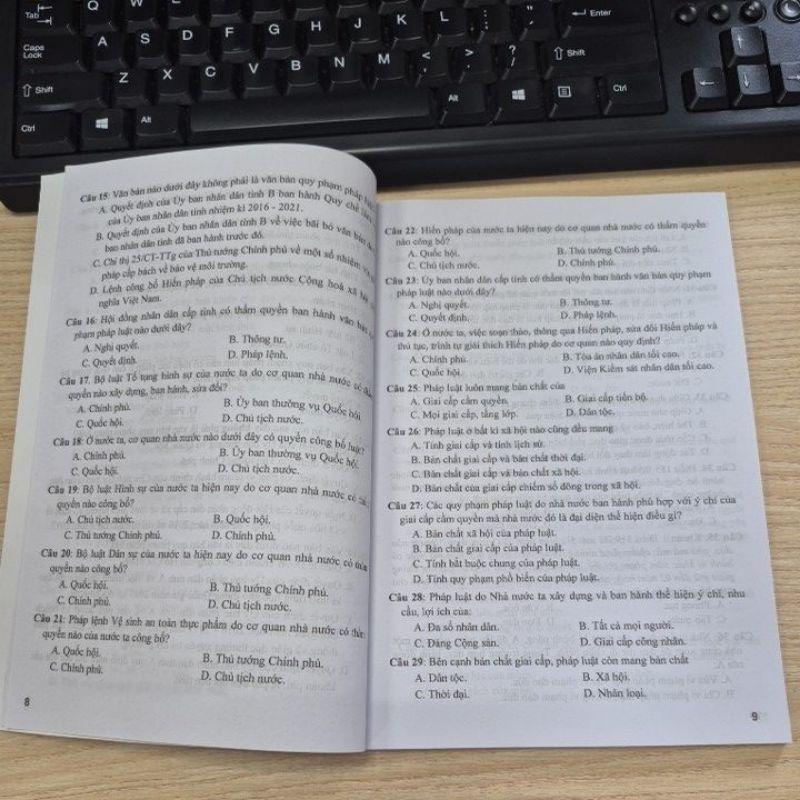 Tab
Q
W
Enter
Caps
Lock
A
S
D
F
G
H
J
K
L
Shift
Z
X
C
V
B
N
M
<
>
?
Shift
Ctrl
Alt
Alt
Ctrl
Câu 15: Văn bản nào dưới đây không phải là văn bản quy phạm pháp
A. Quyết định của Ủy ban nhân dân tỉnh B ban hành Quy chế
của Ủy ban nhân dân tỉnh nhiệm kì 2016 - 2021.
B. Quyết định của Ủy ban nhân dân tỉnh B về việc bãi bỏ văn bản
ban nhân dân tỉnh đã ban hành trước đó.
C. Chỉ thị 25/CT-TTg của Thủ tướng Chính phủ về một số nhiệm
pháp cấp bách về bảo vệ môi trường.
D. Lệnh công bố Hiến pháp của Chủ tịch nước Cộng hoà xã hội
nghĩa Việt Nam.
Câu 16: Hội đồng nhân dân cấp tỉnh có thẩm quyền ban hành văn bản
phạm pháp luật nào dưới đây?
A. Nghị quyết.
B. Thông tư.
C. Quyết định.
D. Pháp lệnh.
Câu 17. Bộ luật Tố tụng hình sự của nước ta do cơ quan nhà nước có
quyền nào xây dựng, ban hành, sửa đổi?
A. Chính phủ.
B. Ủy ban thường vụ Quốc hội.
C. Quốc hội.
D. Chủ tịch nước.
Câu 18: Ở nước ta, cơ quan nhà nước nào dưới đây có quyền công bố luật?
A. Chính phủ.
B. Ủy ban thường vụ Quốc hội.
C. Quốc hội.
D. Chủ tịch nước.
Câu 19: Bộ luật Hình sự của nước ta hiện nay do cơ quan nhà nước có
quyền nào công bố?
A. Chủ tịch nước.
B. Quốc hội.
C. Thủ tướng Chính phủ.
D. Chính phủ.
Câu 20: Bộ luật Dân sự của nước ta hiện nay do cơ quan nhà nước có
quyền nào công bố?
A. Quốc hội.
B. Thủ tướng Chính phủ.
C. Chính phủ.
D. Chủ tịch nước.
Câu 21: Pháp lệnh Vệ sinh an toàn thực phẩm do cơ quan nhà nước có
quyền nào của nước ta công bố?
A. Quốc hội.
B. Thủ tướng Chính phủ.
C. Chính phủ.
D. Chủ tịch nước.
8
Câu 22: Hiến pháp của nước ta hiện nay do cơ quan nhà nước có thẩm quyền
nào công bố?
A. Quốc hội.
B. Thủ tướng Chính phủ.
C. Chủ tịch nước.
D. Chính phủ.
Câu 23: Ủy ban nhân dân cấp tỉnh có thẩm quyền ban hành văn bản quy phạm
pháp luật nào dưới đây?
A. Nghị quyết.
B. Thông tư.
C. Quyết định.
D. Pháp lệnh.
Câu 24: Ở nước ta, việc soạn thảo, thông qua Hiến pháp, sửa đổi Hiến pháp và
thủ tục, trình tự giải thích Hiến pháp do cơ quan nào quy định?
A. Chính phủ.
B. Tòa án nhân dân tối cao.
C. Quốc hội.
D. Viện Kiểm sát nhân dân tối cao.
Câu 25: Pháp luật luôn mang bản chất của
A. Giai cấp cầm quyền.
B. Giai cấp tiến bộ.
C. Mọi giai cấp, tầng lớp.
D. Dân tộc.
Câu 26: Pháp luật ở bất kì xã hội nào cũng đều mang
A. Tính giai cấp và tính lịch sử.
B. Bản chất giai cấp và bản chất thời đại.
C. Bản chất giai cấp và bản chất xã hội.
D. Bản chất của giai cấp chiếm số đông trong xã hội.
Câu 27: Các quy phạm pháp luật do nhà nước ban hành phù hợp với ý chí của
giai cấp cầm quyền mà nhà nước đó là đại diện thể hiện điều gì?
A. Bản chất xã hội của pháp luật.
B. Bản chất giai cấp của pháp luật.
C. Tính bắt buộc chung của pháp luật.
D. Tính quy phạm phổ biến của pháp luật.
Câu 28: Pháp luật do Nhà nước ta xây dựng và ban hành thể hiện ý chí, nhu
cầu, lợi ích của:
A. Đa số nhân dân.
B. Tất cả mọi người.
C. Đảng Cộng sản.
D. Giai cấp công nhân.
Câu 29: Bên cạnh bản chất giai cấp, pháp luật còn mang bản chất
A. Dân tộc.
B. Xã hội.
C. Thời đại.
D. Nhân loại.
9